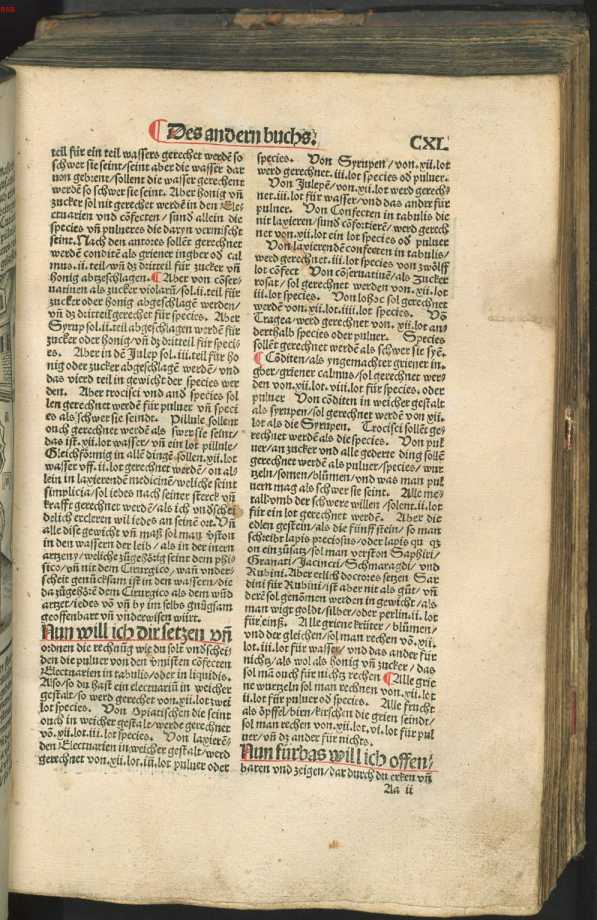 Des andern buchs.
CXL.
teil für ein teil wassers gerechet werdē so
schwer sie seint/seint aber die wasser dar
von gebrent/sollent die wasser gerechent
werdē so schwer sie seint. Aber honig vñ
zucker sol nit gerechet werdē in den Ele⸗
ctuarien vnd cōfecten/ sund allein die
species vñ pulueres die daryn vermischt
seint. Nach den autores sollēt gerechnet
werdē condite als griener ingber od cal
mus.ii.teil/vñ dz dritteil für zucker vñ
honig abgeschlagen. Aber von cōser⸗
uatinen als zucker violarū/sol.ii.teil für
zucker oder honig abgeschlagē werden/
vñ dz dritteil gerechet für species. Aber
Syrup sol.ii.teil abgeschlagen werdē für
zucker oder honig/vñ dz dritteil für speci⸗
es. Aber in dē Julep sol.iii.teil für ho
nig oder zucker abgeschlagē werdē/vnd
das vierd teil in gewicht der species wer
den. Aber trocisci vnd and species sol
len gerechnet werdē für puluer vñ speci
es als schwer sie seindt. Pillule sollent
ouch gerechnet werdē als swer sie seint/
das ist.xii.lot wasser/vñ ein lot pillule/
Gleichförmig in allē dingē sollen.xii.lot
wasser vff.ii.lot gerechnet werdē/on al⸗
lein in laxierendē medicinē/weliche seint
simplicia/sol iedes nach seiner sterck vñ
krafft gerechnet werdē/als ich vndschei
delich ercleren wil iedes an seinē ort. Vñ
alle dise gewicht vñ maß sol man vston
in den wassern der leib/als in der inern
artzeny/weliche zůgehörig seint dem phi⸗
sico/vñ nit dem Cirurgico/wañ vnder⸗
scheit genůcksam ist in den wassern/die
da zůgehörē dem Cirurgico als dem wūd
artzet/iedes vō vñ by im selbs gnůgsam
geoffenbart vñ vnderwisen würt.
Nun will ich dir setzen vñ
ordnen die rechnūg wie du solt vndschei
den die puluer von den vmistē cōfecten
Electuarien in tabulis/oder in liquidis.
Also/so du hast ein electuariū in weicher
gestalt/so werd gerechet von.xii.lot zwei
lot species. Von Opiatischen die seint
ouch in weicher gestalt/werde gerechnet
vō.xii.lot.iii.lot species. Von laxierē⸗
den Electuarien in weicher gestalt/werd
gerechnet von.xii.lot.iii.lot puluer oder
species. Von Syrupen/von.xii.lot
werd gerechnet.iii.lot species od puluer.
Von Julepē/von.xii.lot werd gerech⸗
net.iii.lot für wasser/vnd das ander für
puluer. Von Confecten in tabulis die
nit laxieren/sund cōfortierē/werd gerech
net von.xii.lot ein lot species od puluer
Von laxierendē confecten in tabulis/
werd gerechnet.iii.lot species von zwölff
lot cōfect Von cōseruatinē/als Zucker
rosat/sol gerechnet werden von.xii.lot
iii.lot species. Von lohoc sol gerechnet
werdē von.xii.lot.iiii.lot species. Vō
Tragea/werd gerechnet von.xii.lot an⸗
derthalb species oder puluer. Species
sollēt gerechnet werdē als schwer sie syē.
Cōditen/als yngemachter griener in⸗
gber/griener calmus/sol gerechnet wer⸗
den von.xii.lot.viii.lot für species. oder
puluer Von cōditen in weicher gestalt
als syrupen/sol gerechnet werdē von xii.
lot als die Syrupen. Trocisci sollēt ge⸗
rechnet werdē als die species. Von pul
uer/an zucker vnd alle gederte ding sollē
gerechnet werdē als puluer/species/wur
tzeln/somen/blümen/vnd was man pul
uern mag als schwer sie seint. Alle me⸗
tall vmb der schwere willen/solent.ii.lot
für ein lot gerechnet werdē. Aber die
edlen gestein/als die fünff stein/so man
schreibt lapis preciosus/oder lapis qn̄ qz
on ein zůsatz/sol man verston Saphiri/
Granati/Jacincti/Schmaragdi/vnd
Rubini. Aber etlich doctores setzen Sar
dini für Rubini/ist aber nit als gůt/vñ
derē sol genōmen werden in gewicht/als
man wigt goldt/silber/oder perlin.ii.lot
für einß. Alle griene krüter/blümen/
vnd der gleichen/sol man rechen vō.xii.
lot.iii.lot für wasser/vnd das ander für
nichtz/als wol als honig vñ zucker/das
sol mā ouch für nichtz rechen Alle grie
ne wurtzeln sol man rechnen von.xii.lot
ii.lot für puluer od species. Alle frucht
als öpffel/birn/kirschen die grien seindt/
sol man rechen von.xii.lot.vi.lot für pul
uer/vñ dz ander für nichts.
Nun fürbas will ich offen⸗
baren vnd zeigen/dar durch du erken vñ
Aa ii